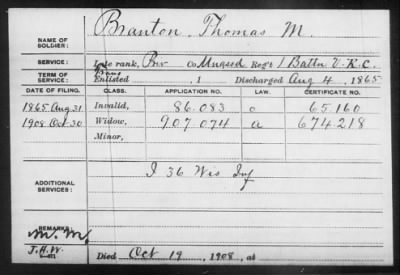 NAME OF SOLDIER: Branton, Thomas M.
SERVICE: Late rank, Priv Co Unassd Regt 1 Battn V.R.C.
TERM OF SERVICE: Enlisted , 1 Discharged Aug 4, 1865
DATE OF FILING. CLASS. APPLICATION NO. LAW. CERTIFICATE NO.
1865 Aug 31 Invalid, 86.083 65.160
1908 Oct 30 Widow, 907 074 a 674.218
Minor,
ADDITIONAL SERVICES: I 36 Wis Inf
REMARKS:
M. M.
J.H.W.
Died Oct 19, 1908, at